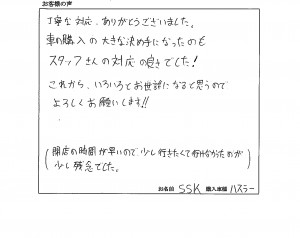 お客様の声
丁寧な対応、ありがとうございました。
車の購入の大きな決め手になったのも
スタッフさんの対応の良さでした!
これから、いろいろとお世話になると思うので
よろしくお願いします!!
(閉店の時間が早いので、少し行きたくて行けなかったのが
少し残念でした。)
お名前 SSK 購入車種 ハスラー